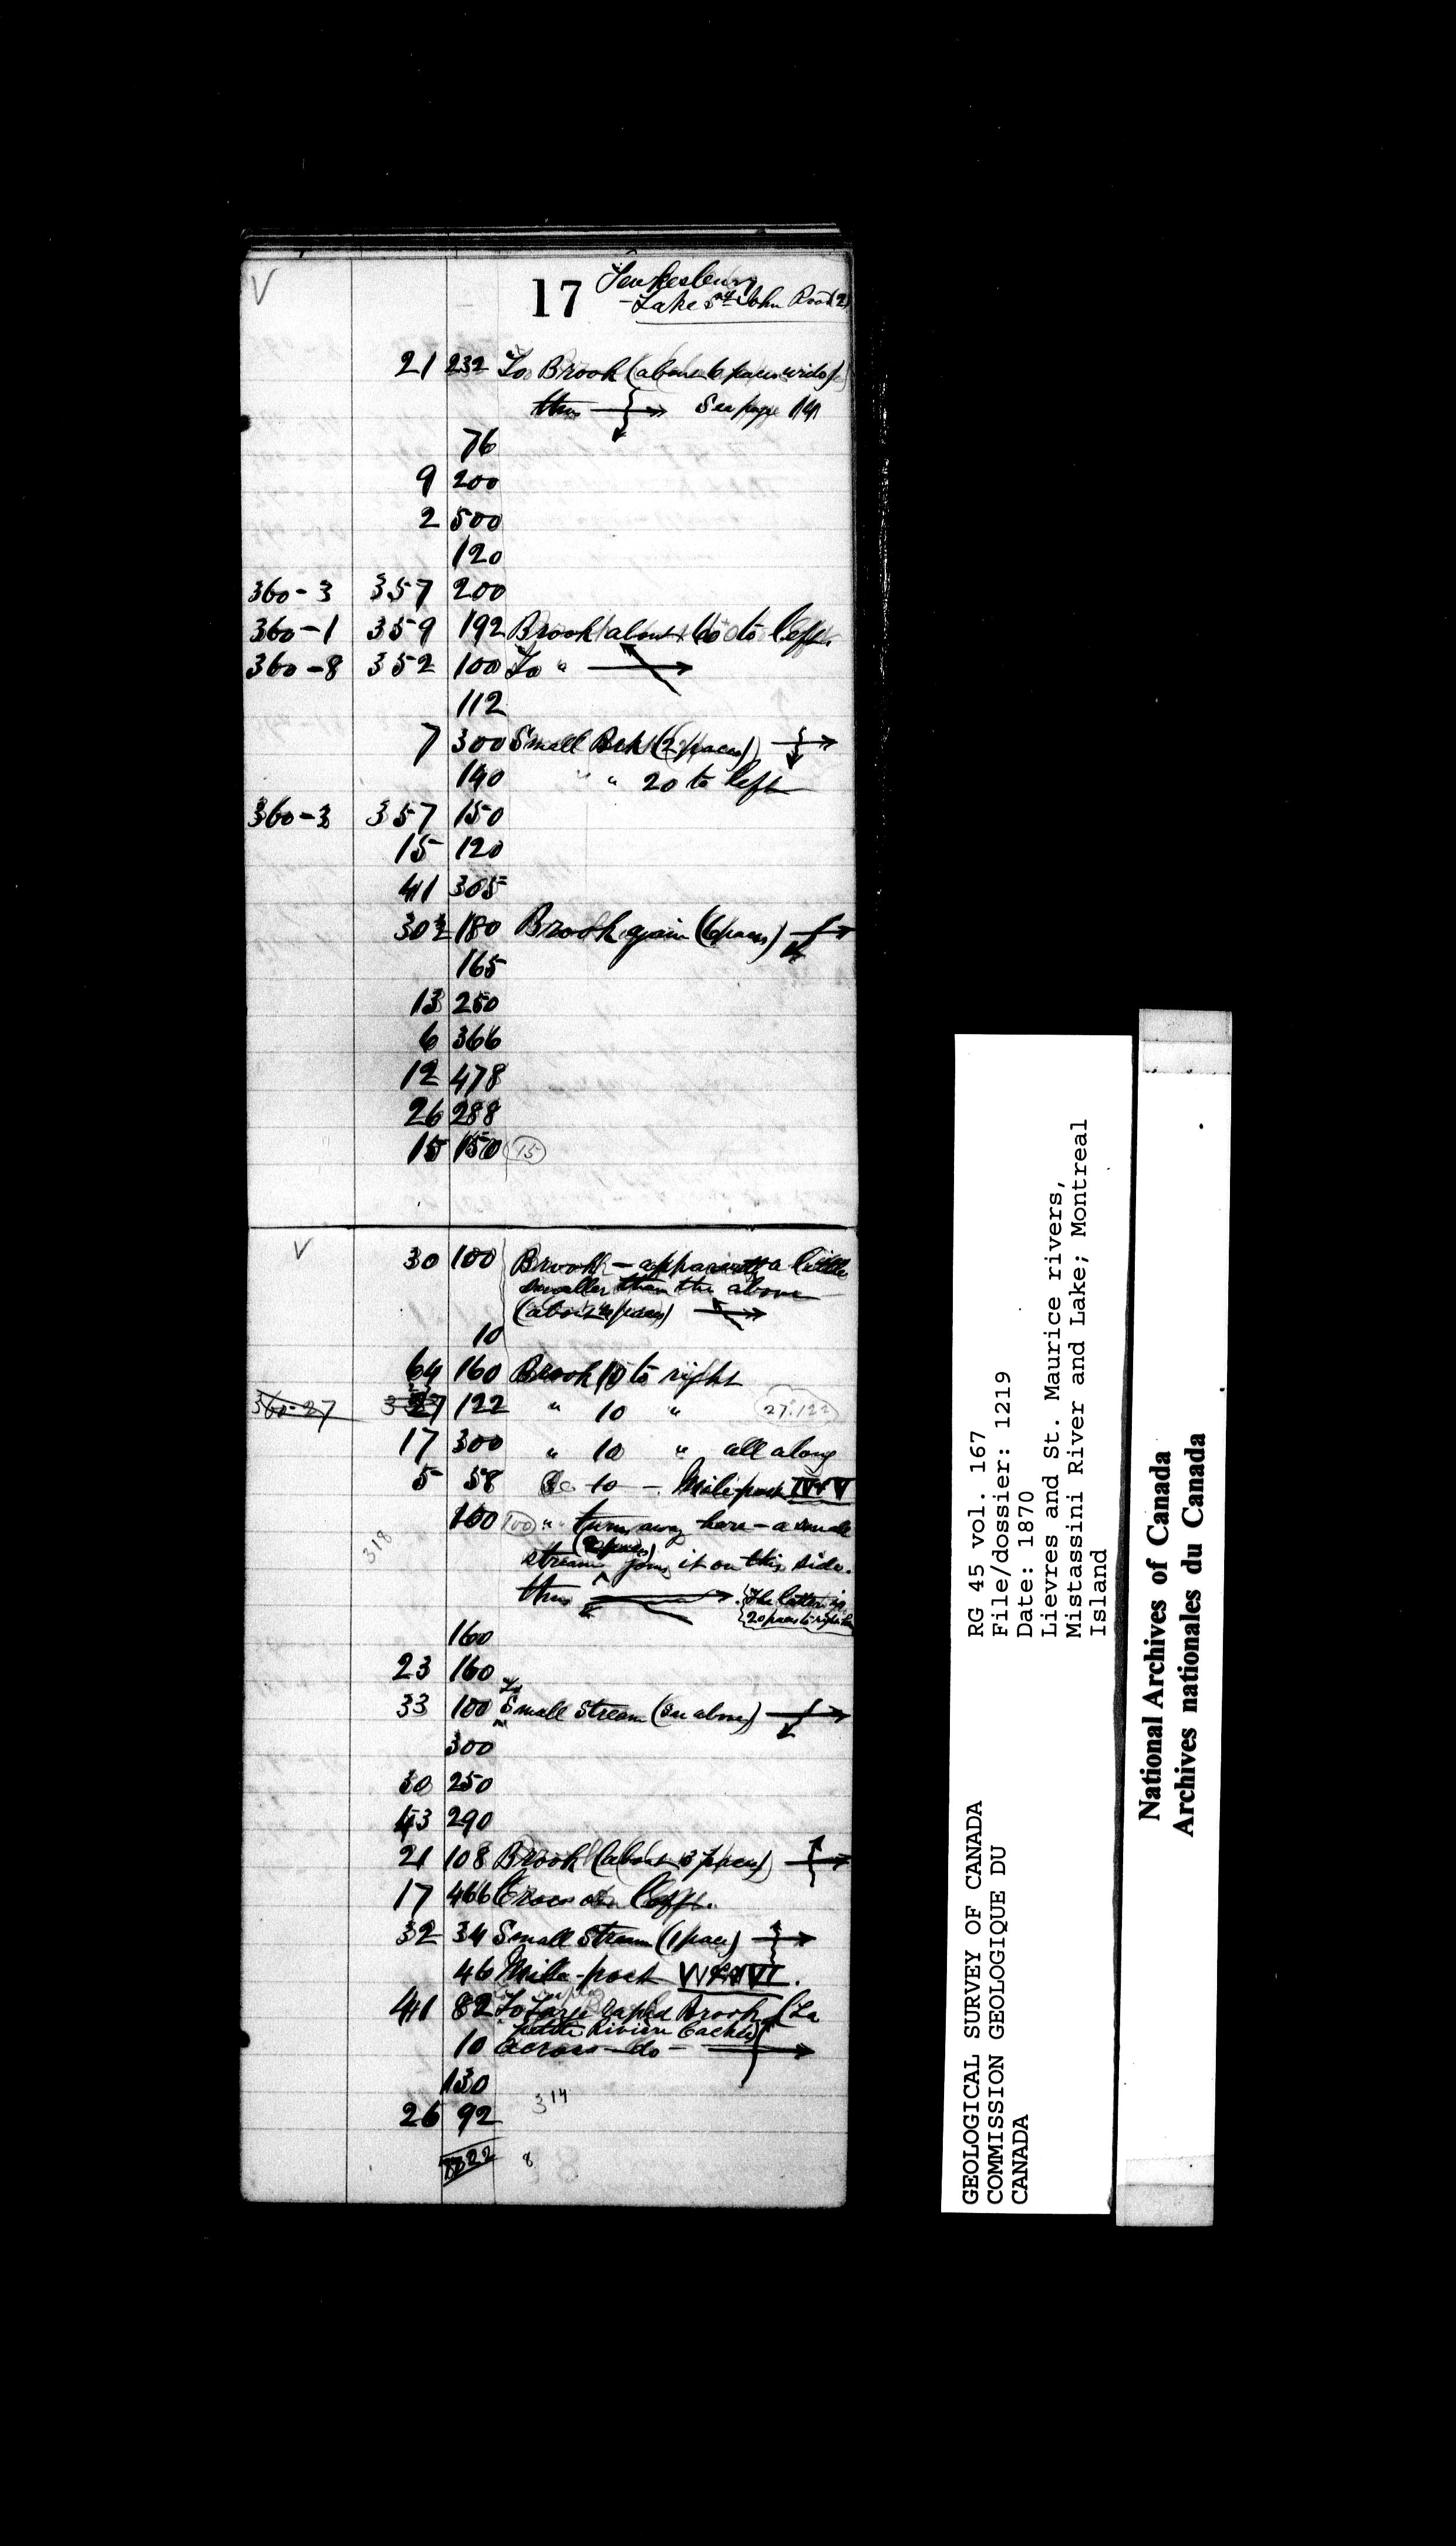 V
17 Tewkesbury
- Lake St John Road (2)
21 232 To Brook (above 6 paces wide)
thus See page 14
76
9 200
2 500
120
360-3 357 200
360-1 359 192 Brook about 60 to left.
360-8 352 100 To "
112
7 300 Small Bck (2 paces)
140 " " 20 to left
360-3 357 150
15 120
41 305
30½ 180 Brook again (6 paces)
165
13 250
6 366
12 478
26 288
15 150 (15)
V
30 100 Brook - apparently a little
smaller than the above
(about paces)
10
64 160 Brook 10 to right
360-27 27 122 " 10 " 27.122
17 300 " 10 " all along
5 58 10 - Mile-post
100 100 " turns away here - a small
(2 paces)
stream joins it on this side.
318
thus The latter is
20 paces to right
160
23 160
To
33 100 Small Stream (see above)
300
30 250
43 290
21 108 Brook (about 3 paces)
17 466 Cross on left.
32 34 Small Stream (1 pace)
46 Mile-post
41 82 To Large rapid Brook (La
petite Rivière Cachée)
10 across - do -
130
26 92
314
22 8
GEOLOGICAL SURVEY OF CANADA
COMMISSION GEOLOGIQUE DU
CANADA
RG 45 vol. 167
File/dossier: 1219
Date: 1870
Lievres and St. Maurice rivers,
Mistassini River and Lake; Montreal
Island
National Archives of Canada
Archives nationales du Canada